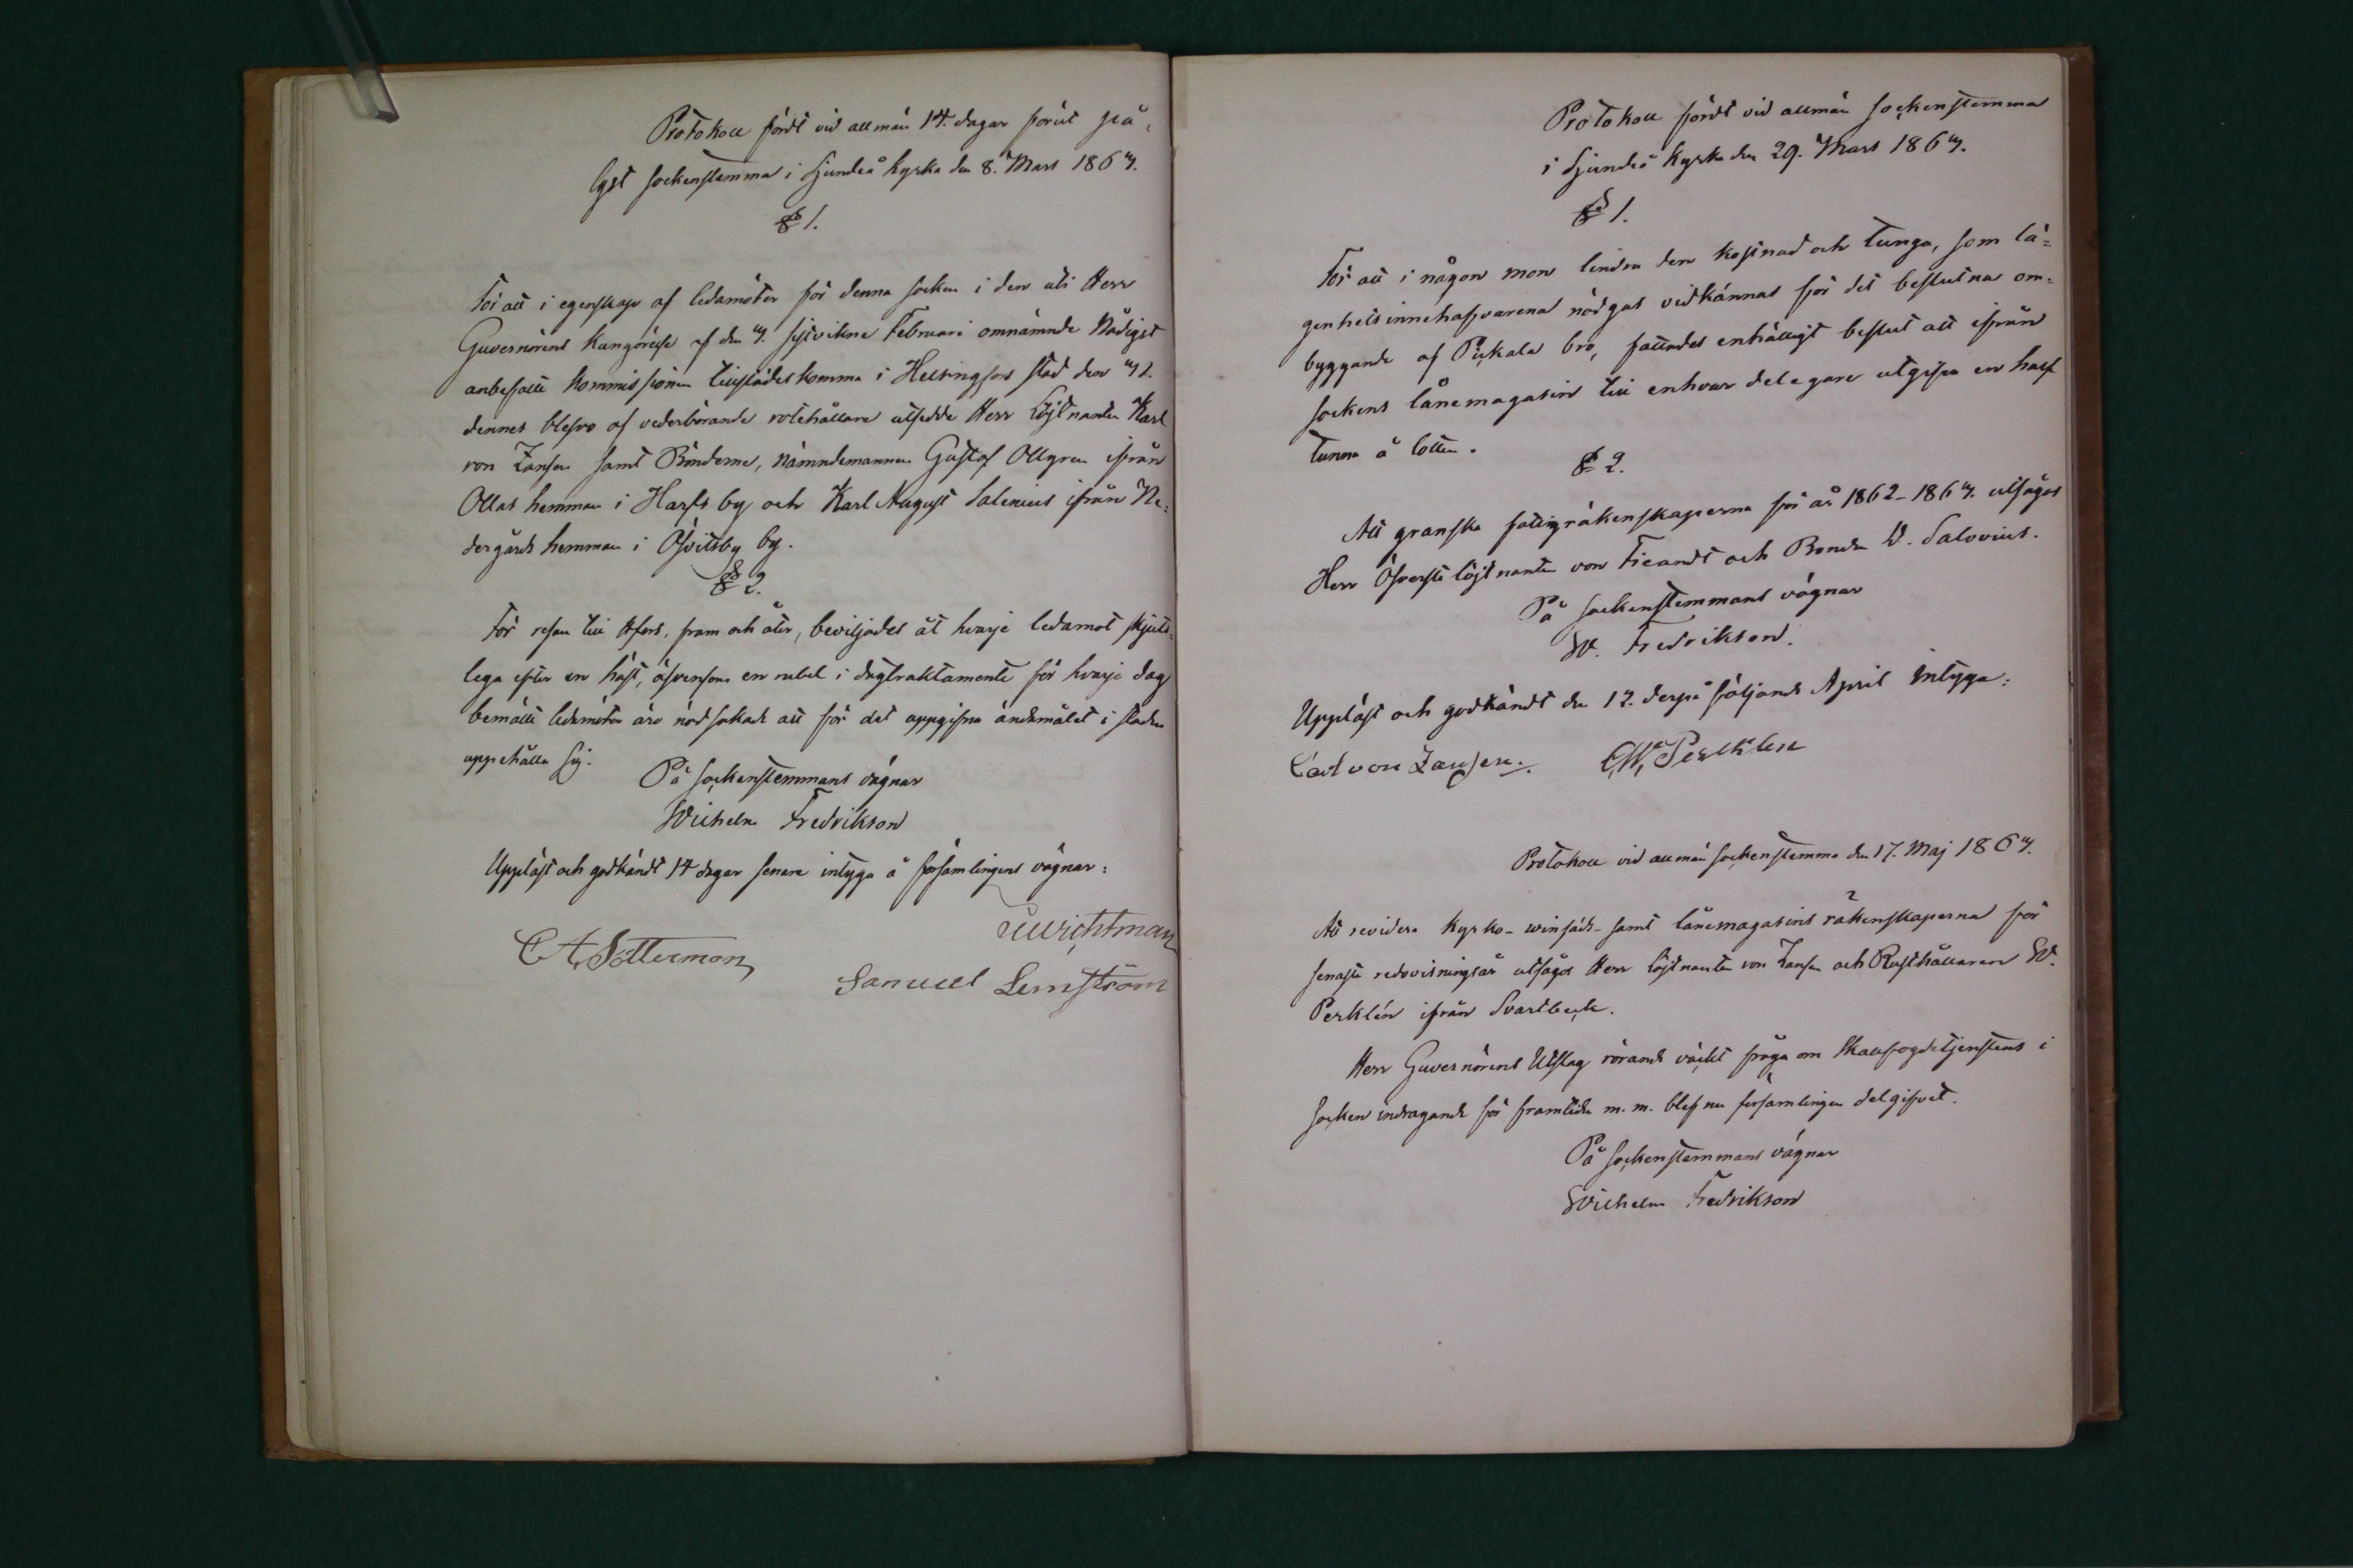 Protokoll fördt vid allmän 14. dagar förut på-
lyst sockenstemma i Sjundeå kyrka den 8. Mars 1863.
§ 1.
För att i egenskap af ledamöter för denna socken i den uti Herr
Guvernörens Kungörelse af den 3. sistvikne Februari omnämnde Nådigst
anbefallte kommissionen tillstädeskomma i Helsingfors stad den 31.
dennes blefvo af vederbörande rotehållare utsedde Herr Löjtnanten Karl
von Zansen samt Bönderne, nämndemannen Gustaf Ollgren ifrån
Ollas hemman i Harfs by och Karl August Salenius ifrån Ne-
dergårds hemman i Ösvitsby by.
§ 2.
För resan till Hfors, fram och åter, beviljades åt hvarje ledamot skjuts-
lega efter en häst, äfvensom en rubel i dagtraktamente för hvarje dag
bemälte ledamöter äro nödsakade att för det uppgifna ändamålet i staden
uppehålla sig.
På sockenstemmans vägnar
Wilhelm Fredrikson
Uppläst och godkändt 14 dagar senare intyga å församlingens vägnar:
Wichtman
C A Sötterman
Samuel Lemström
Protokoll fördt vid allmän sockenstemma
i Sjundeå kyrka den 29. Mars 1863.
§ 1.
För att i någon mon lindra den kostnad och tunga, som lä-
genhetsinnehafvarena nödgas vidkännas för det beslutna om-
byggande af Pickala bro, fattades enhälligt beslut att ifrån
sockens lånemagasin till enhvar delegare utgifva en half
tunna å lotten.
§ 2.
Att granska fattigräkenskaperna för år 1862-1863. utsågos
Herr Öfverstelöjtnanten von Fieandt och Bonden W. Salovius.
På sockenstemmans vägnar
W. Fredrikson.
Uppläst och godkändt den 12. derpå följande April intyga:
Carl von Zansen. C, W, Perklén
Protokoll vid allmän sockenstemma den 17. Maj 1863.
Att revidera kyrko- winfäds- samt lånemagasins räkenskaperna för
senaste redovisningsår utsågos Herr löjtnanten von Zansen och Rusthållaren W.
Perklén ifrån Svartbeck.
Herr Guvernörens Utslag rörande väckt fråga om Skallfogdetjenstens i
socken indragande för framtiden m. m. blef nu församlingen delgifvet.
På sockenstemmans vägnar
Wilhelm Fredrikson